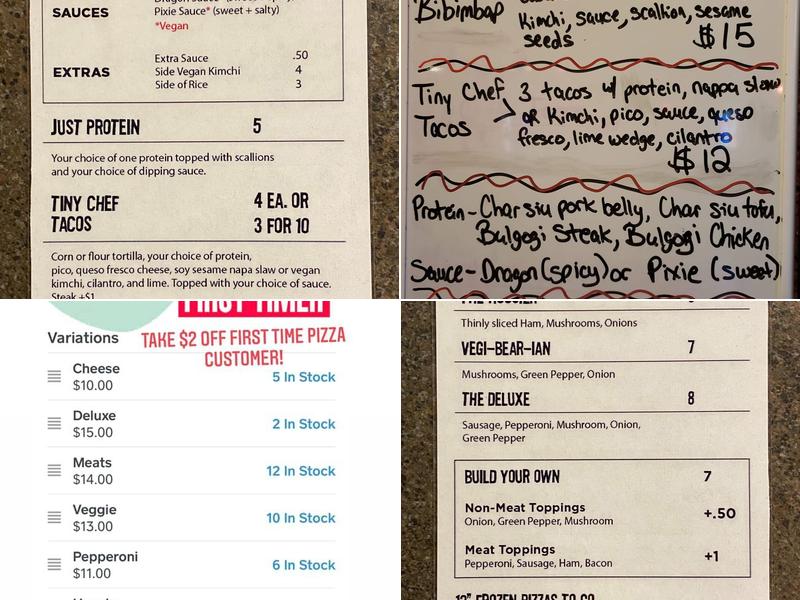 SAUCES
Pixie Sauce* (sweet + salty)
*Vegan
EXTRAS
Extra Sauce .50
Side Vegan Kimchi 4
Side of Rice 3
JUST PROTEIN 5
Your choice of one protein topped with scallions
and your choice of dipping sauce.
TINY CHEF 4 EA. OR
TACOS 3 FOR 10
Corn or flour tortilla, your choice of protein,
pico, queso fresco cheese, soy sesame napa slaw or vegan
kimchi, cilantro, and lime. Topped with your choice of sauce.
Steak +$1
Bibimbap
Kimchi, sauce, scallion, sesame
seeds $15
Tiny Chef > 3 tacos w/ protein, nappa slaw
Tacos or Kimchi, pico, sauce, queso
fresco, lime wedge, cilantro
$12
Protein - Char siu pork belly, Char siu tofu,
Bulgogi Steak, Bulgogi Chicken
Sauce - Dragon (spicy) or Pixie (sweet)
FIRST TIMER
Variations
TAKE $2 OFF FIRST TIME PIZZA
CUSTOMER!
Cheese
$10.00 5 In Stock
Deluxe
$15.00 2 In Stock
Meats
$14.00 12 In Stock
Veggie
$13.00 10 In Stock
Pepperoni
$11.00 6 In Stock
Thinly sliced Ham, Mushrooms, Onions
VEGI-BEAR-IAN 7
Mushrooms, Green Pepper, Onion
THE DELUXE 8
Sausage, Pepperoni, Mushroom, Onion,
Green Pepper
BUILD YOUR OWN 7
Non-Meat Toppings +.50
Onion, Green Pepper, Mushroom
Meat Toppings +1
Pepperoni, Sausage, Ham, Bacon
12" FROZEN PIZZAS TO GO